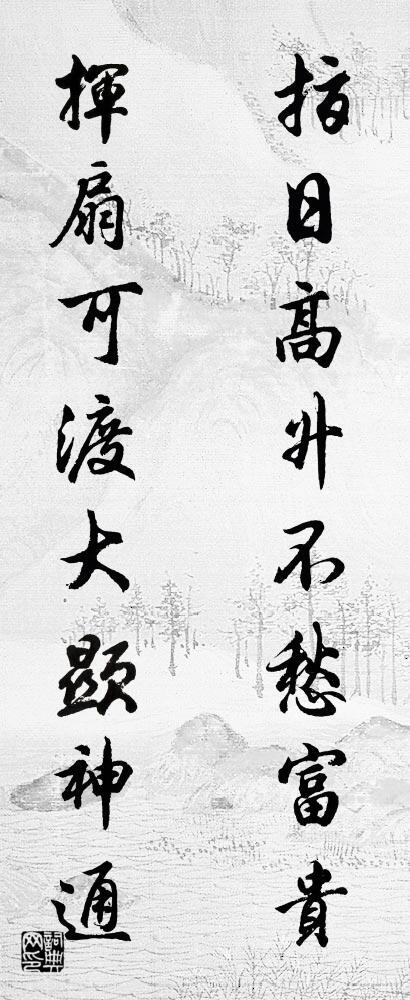 指日高升不愁富貴
揮扇可渡大顯神通
詞典网印